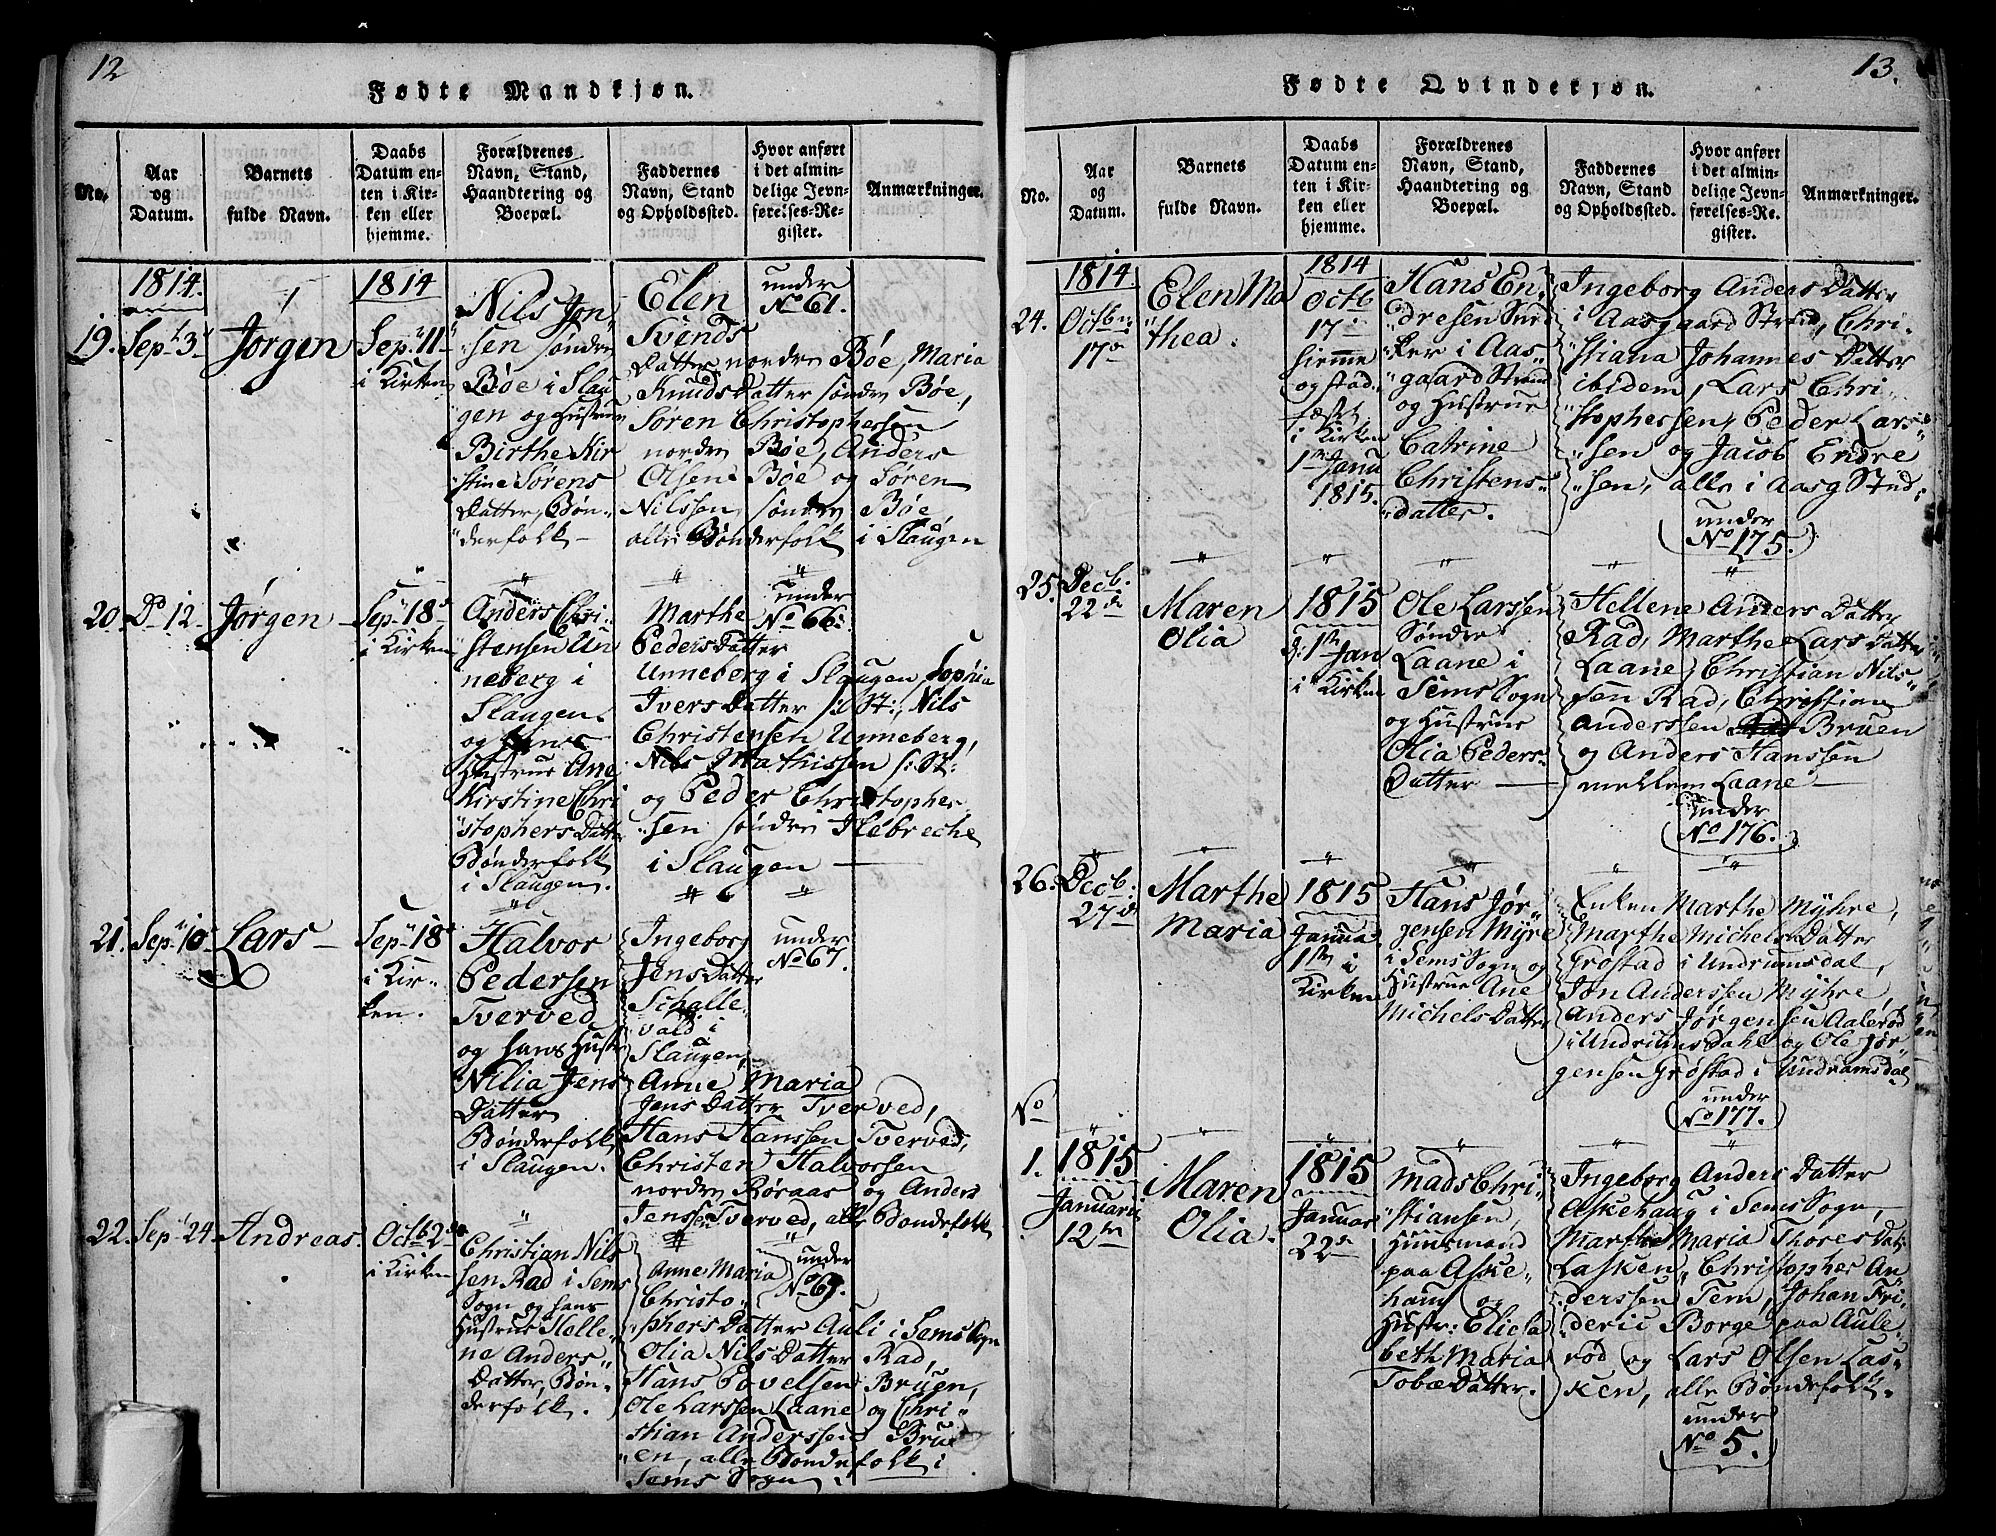 12
Fødte Mandkjøn.
No.
Aar
og
Datum.
Barnets
fulde Navn.
Daabs
Datum en-
ten i Kir-
ken eller
hjemme.
Forældrenes
Navn, Stand,
Haandtering og
Boepæl.
Faddernes
Navn, Stand
og Opholdssted.
Hvor anført
i det almin-
delige Jevn-
førelses-Re-
gister.
Anmærkninger.
1814.
19. Sept 3
Jørgen
1814
Sep. 11
i Kirken
Nils Jon
sen søndre
Bøe i Slau
gen og Hustrue
Birthe Kir
stine Sørens
Datter, Bøn
derfolk
Elen
Svends
Datter nordre Bøe, Maria
Knuds Datter søndre Bøe,
Søren Christophersen
nordre Bøe, Anders
Olsen Bøe og Søren
Nilssen søndre Bøe,
alle Bønderfolk i Slaugen
under
No 61.
20. Do 12
Jørgen
Sep. 18
i Kirken
Anders Chri
stensen Un
neberg i
Slaugen
og hans
Hustrue Ane
Kirstine Chri
stophers Datter
Bønderfolk
i Slaugen.
Marthe
Peders Datter
Unneberg i Slaugen, Sophia
Ivers Datter s: St:, Nils
Christensen Unneberg,
Nils Mathissen s: St:
og Peder Christopher
sen søndre Ilebreche
i Slaugen
under
No 66:
21. Sep. 10
Lars
Sep. 18
i Kir-
ken.
Halvor
Pedersen
Tverved
og hans Hustr
Nilia Jens
Datter
Bønderfolk
i Slaugen.
Ingeborg
Jens Datter
Schalle-
vald i
Slaugen,
Anne Maria
Jens Datter Tverved,
Hans Hanssen Tverved,
Christen Halvorsen
nordre Røraas og Anders
Jenssen Tverved, alle Bøndefolk
under
No 67.
22. Sep. 24.
Andreas.
Octb 2
i Kirken
Christian Nils
sen Rad i Sems
Sogn og hans
Hustrue Helle
ne Anders
Datter, Bøn
derfolk.
Anne Maria
Christo
phers Datter Auli i Sems Sogn
Olia Nils Datter Rad,
Hans Povelsen Bruen,
Ole Larssen Laane og Chri
stian Anderssen Brue
en, alle Bøndefolk i
Sems Sogn.
under
No 69.
13.
Fødte Qvindekjøn.
No.
Aar
og
Datum.
Barnets
fulde Navn.
Daabs
Datum en-
ten i Kir-
ken eller
hjemme.
Forældrenes
Navn, Stand,
Haandtering og
Boepæl.
Faddernes
Navn, Stand
og Opholdssted.
Hvor anført
i det almin-
delige Jevn-
førelses-Re-
gister.
Anmærkninger.
1814.
24. Octbr
17
Elen Ma
thea.
1814
Octb
17
hiemme
og stad-
fæstet
i Kirken
1 Janu
1815.
Hans En
dresen Snid
ker i Aas
gaard Strand
og Hustrue
Catrine
Christens
datter.
Ingeborg Anders Datter
i Aasgaard Strand, Chri
stiana Johannes Datter
ibidem, Lars Chri
stophersen, Peder Lars
sen og Jacob Endre
sen, alle i Aasg Strd:
under
No 175.
25. Decb.
22
Maren
Olia
1815
d: 1 Jan
i Kirken
Ole Larssen
Sønder
Laane i
Sems Sogn
og Hustrue
Olia Peders
Datter
Hellene Anders Datter
Rad, Marthe Lars Datter
Laane, Christian Nils
sen Rad, Christian
Anderssen Bruen
og Anders Hanssen
mellem Laane
under
No 176.
26. Decb.
27
Marthe
Maria
1815
Janua
1 i
Kirken
Hans Jør
gensen Myre
i Sems Sogn og
Hustrue Ane
Michels Datter
Enken Marthe Myhre,
Marthe Michels Datter
Grøstad i Undrumsdal,
Jon Anderssen Myhre,
Anders Jørgensen Aalerød
i Undrumsdahl og Ole Jør
gensen Grøstad i Undramsdal
under
No 177.
No
1.
1815
Januarii
12
Maren
Olia.
1815
Januar
22
Mads Chri
stiansen,
Huusmand
paa Aske
haug og
Hustr: Elisa
beth Maria
Tobæ Datter.
Ingeborg Anders Datter
Askehaug i Sems Sogn,
Marthe Maria Thores Dat
Lasken, Christopher An
derssen Tem, Johan Fri
deric Borge paa Aule
rød og Lars Olsen Las
ken, alle Bøndefolk.
under
No 5.